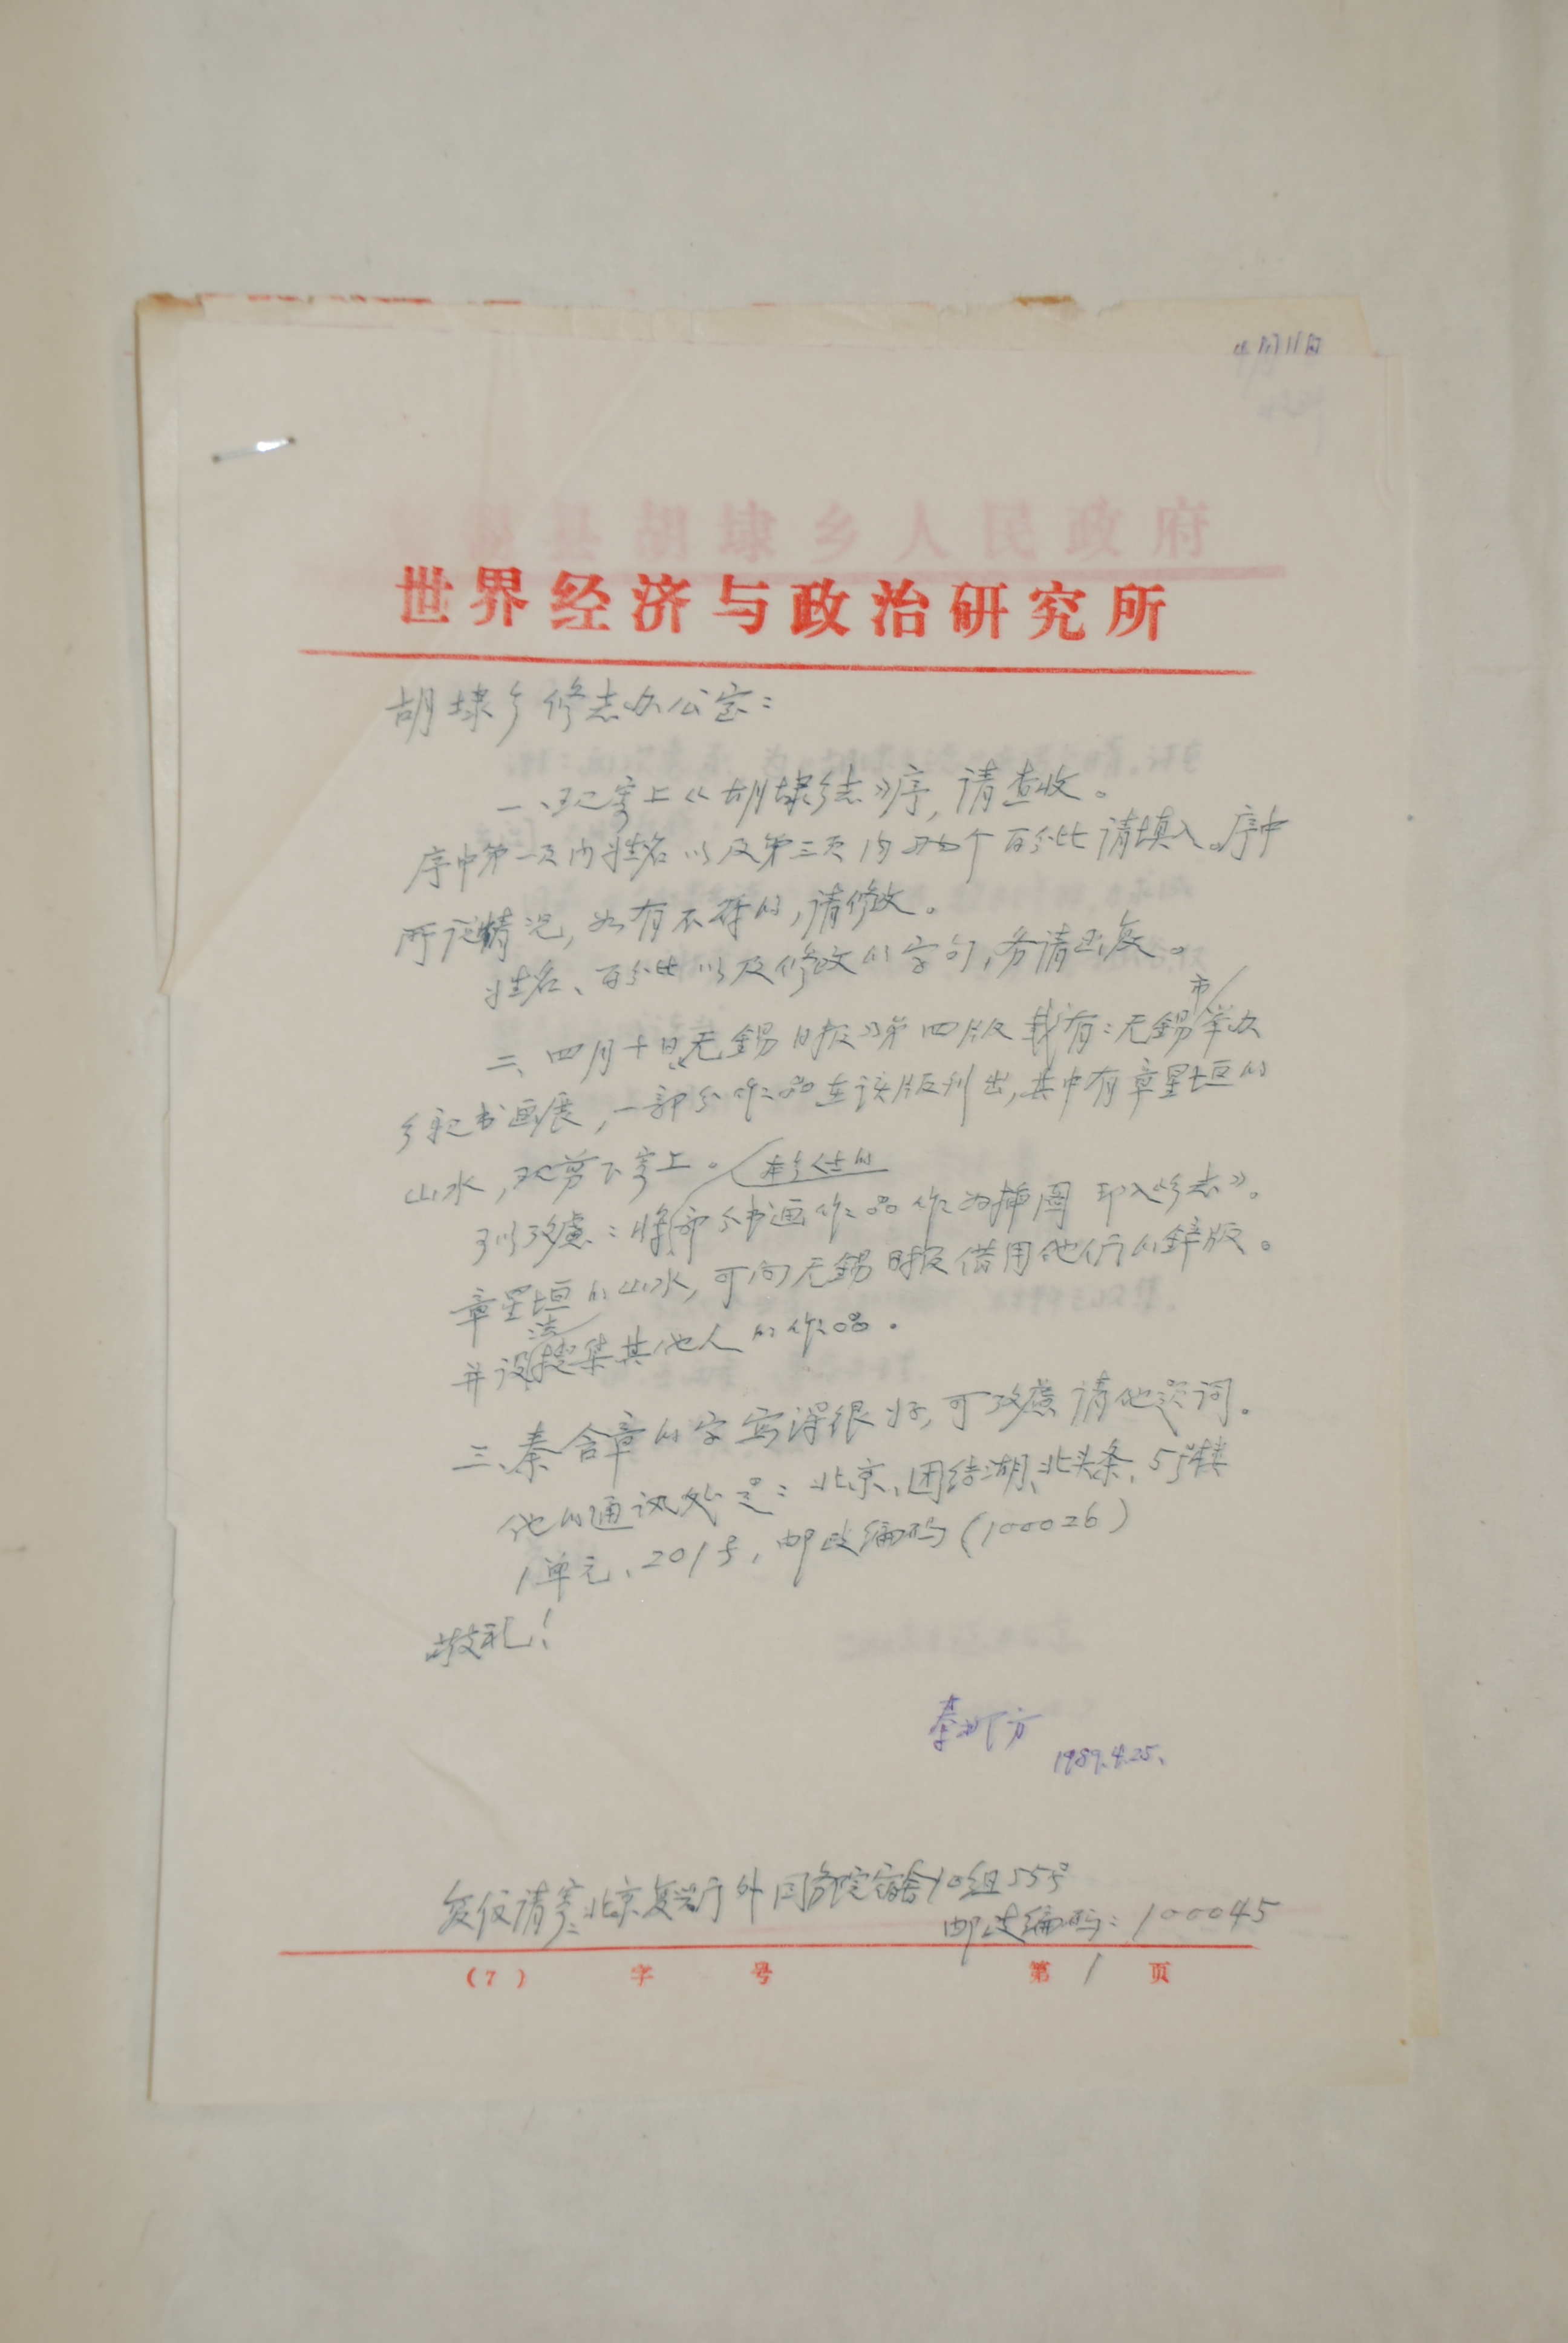 4月11日
锡县胡埭乡人民政府
世界经济与政治研究所
胡埭乡修志办公室：
一、现寄上《胡埭乡志》序，请查收。
序中第一页内姓名以及第三页内两个百分比请填入。序中
所说情况，如有不符的，请修改。
姓名、百分比以及修改的字句，务请函复。
市
二、四月十日《无锡日报》第四版载有：无锡举办
乡记书画展，一部分作品在该版刊出，其中有章星垣的
山水，现剪下寄上。
本乡人士的
可以考虑：将部分书画作品作为插图印入《乡志》。
章星垣的山水，可向无锡日报借用他们的锌版。
法
并设搜集其他人的作品。
三、秦含章的字写得很好，可考虑请他题词。
他的通讯处是：北京、团结湖、北头条、5号楼
1单元、201号，邮政编码（100026）
敬礼！
秦柳方
1989.4.25、
复信请寄：北京复兴门外国务院宿舍10组55号
邮政编码：100045
（7） 字 号 第 1 页